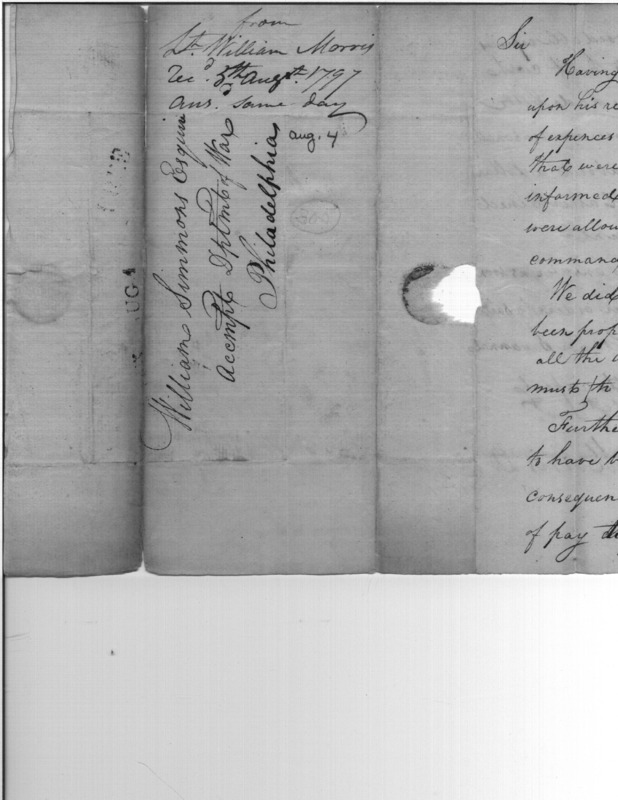 from
Lt. William Morris
Rec'd. 5th augst. 1797
ans'd. same day
aug. 4
William Simmons Esquire
Accmpt Dptmt of War
Philadelphia
AUG 4
Sir
Having
upon his re
of expences
that were
informed
were allow
command
We did
been prop
all the
must th
Furthe
to have b
consequen
of pay du